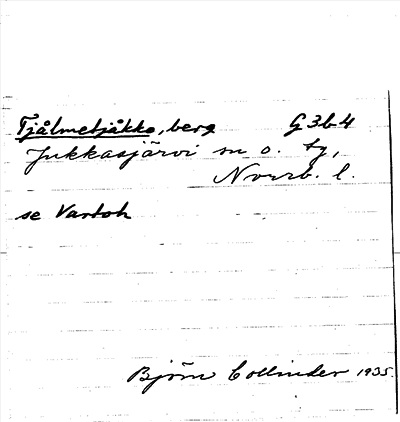 Tjålmetjåkko, berg G 3 b 4
Jukkasjärvi sn o. tg,
Norrb. l.
se Vartoh
Björn Collinder 1935.